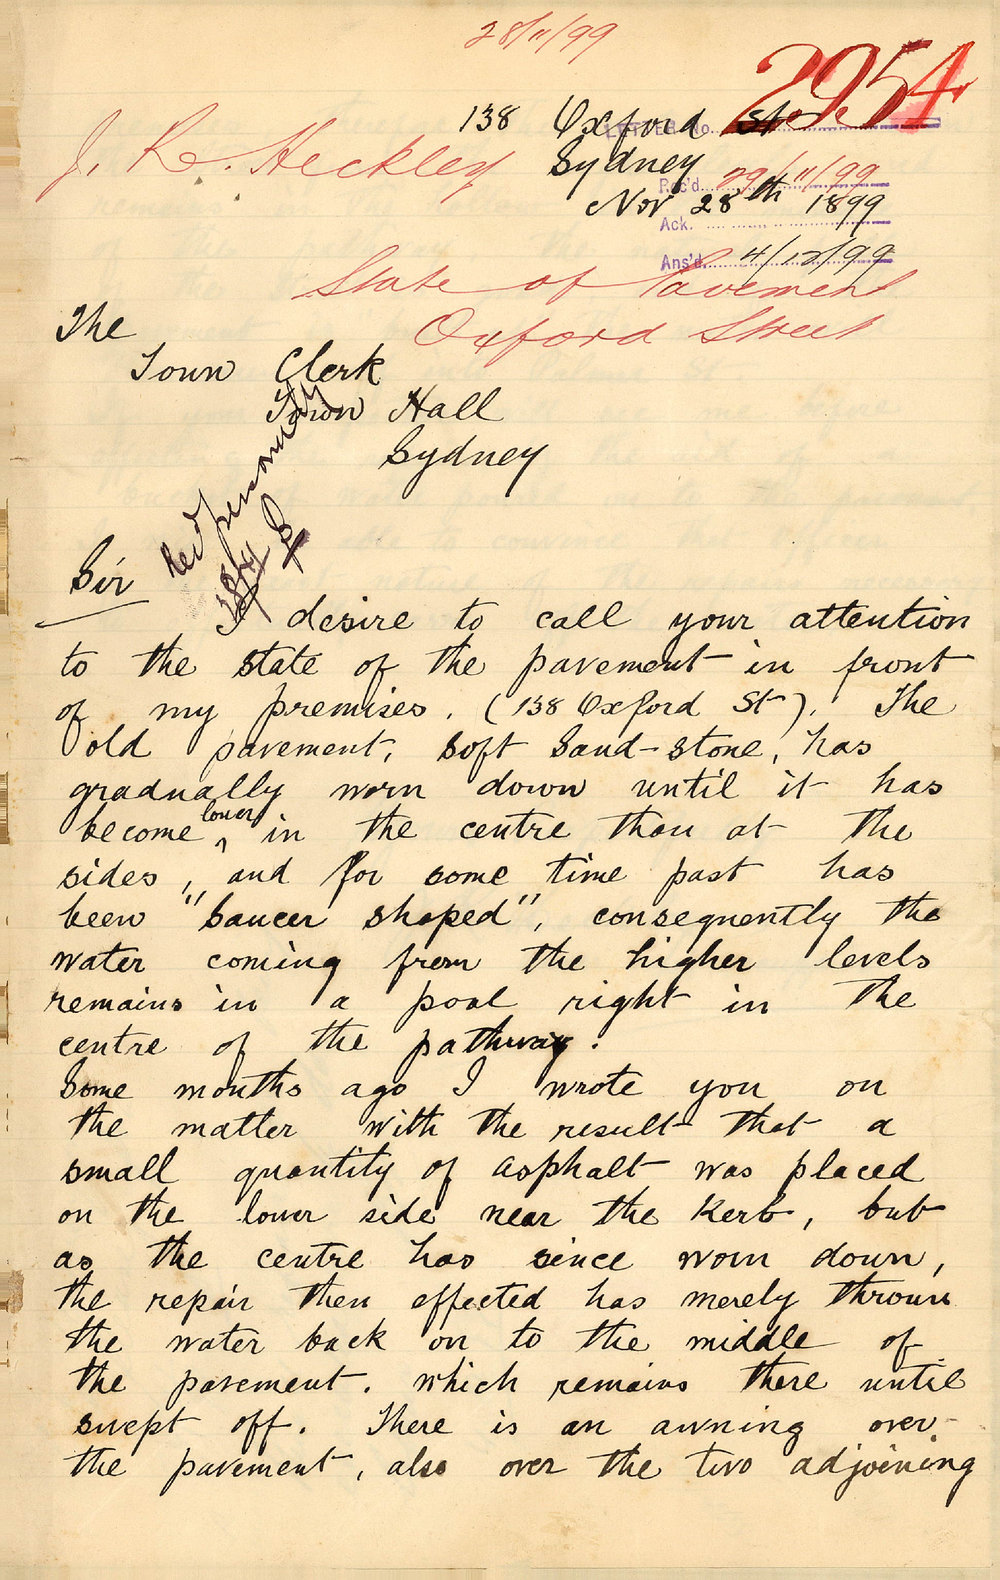 28/11/99
2954
138 Oxford St
LETTER No.
J. R. Heckley
Sydney
Rec'd. 29/11/99
Nov 28th 1899
Ack.
Ans'd. 4/12/99
State of Pavement
Oxford Street
The
Town Clerk
Town Hall
Sydney
Red personally
Sir
I desire to call your attention
to the state of the pavement in front
of my premises. (138 Oxford St). The
old pavement, soft sand-stone, has
gradually worn down until it has
become lower in the centre than at the
sides, and for some time past has
been "saucer shaped", consequently the
water coming from the higher levels
remains in a pool right in the
centre of the pathway.
Some months ago I wrote you on
the matter with the result that a
small quantity of asphalt was placed
on the lower side near the Kerb, but
as the centre has since worn down,
the repair then effected has merely thrown
the water back on to the middle of
the pavement. which remains there until
swept off. There is an awning over
the pavement, also over the two adjoining